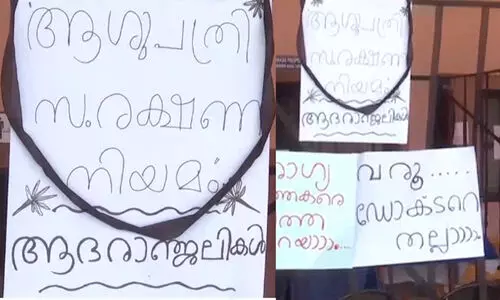 ആശുപത്രി
സംരക്ഷണ
നിയമം
ആദരാഞ്ജലികൾ
ആശുപത്രി
സംരക്ഷണ
നിയമം
ആദരാഞ്ജലികൾ
വരൂ.....
ഡോക്ടറെ
തല്ലാാാം